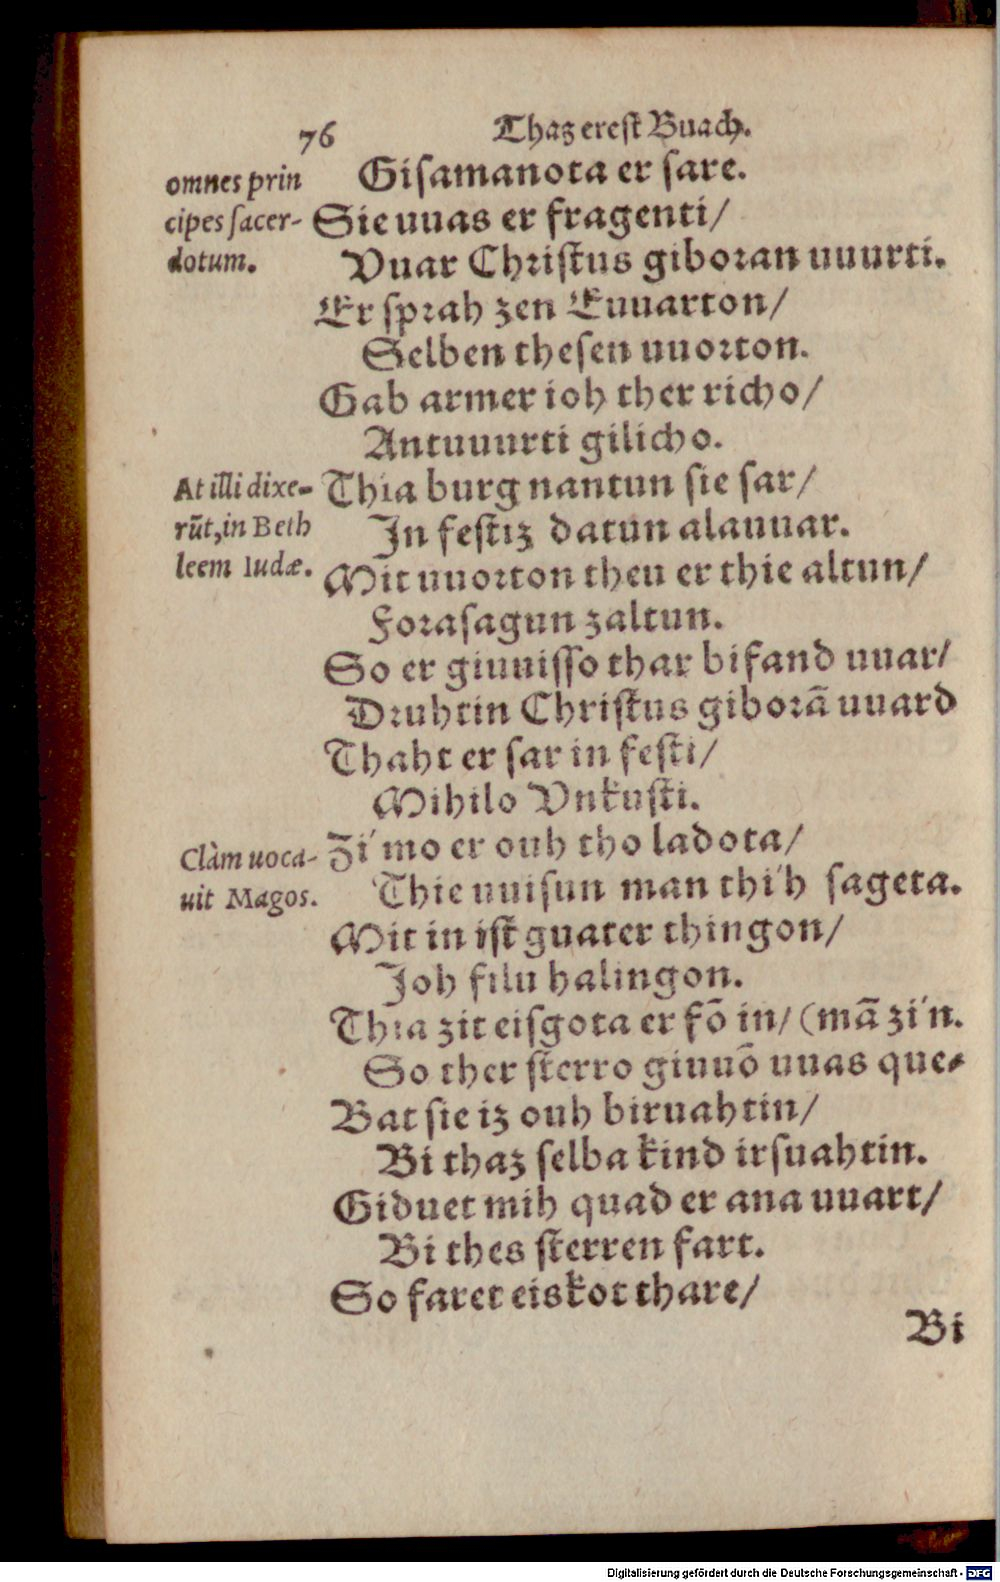 76 Thaz erest Buach.
omnes prin
cipes sacer-
dotum.
Gisamanota er sare.
Sie uuas er fragenti/
Vuar Christus giboran uuurti.
Er sprah zen Euuarton/
Selben thesen uuorton.
Gab armer ioh ther richo/
Antuuurti gilicho.
At illi dixe-
rūt, in Beth
leem Iudæ.
Thia burg nantun sie sar/
In festiz datun alauuar.
Mit uuorton theu er thie altun/
Forasagun zaltun.
So er giuuisso thar bifand uuar/
Druhtin Christus giborā uuard
Thaht er sar in festi/
Mihilo Vnkusti.
Clàm uoca-
uit Magos.
Zi' mo er ouh tho ladota/
Thie uuisun man thi'h sageta.
Mit in ist guater thingon/
Joh filu halingon.
Thia zit eisgota er fō in/ (mā zi'n.
So ther sterro giuuō uuas que-
Bat sie iz ouh biruahtin/
Bi thaz selba kind irsuahtin.
Giduet mih quad er ana uuart/
Bi thes sterren fart.
So faret eiskot thare/
Bi
Digitalisierung gefördert durch die Deutsche Forschungsgemeinschaft - DFG